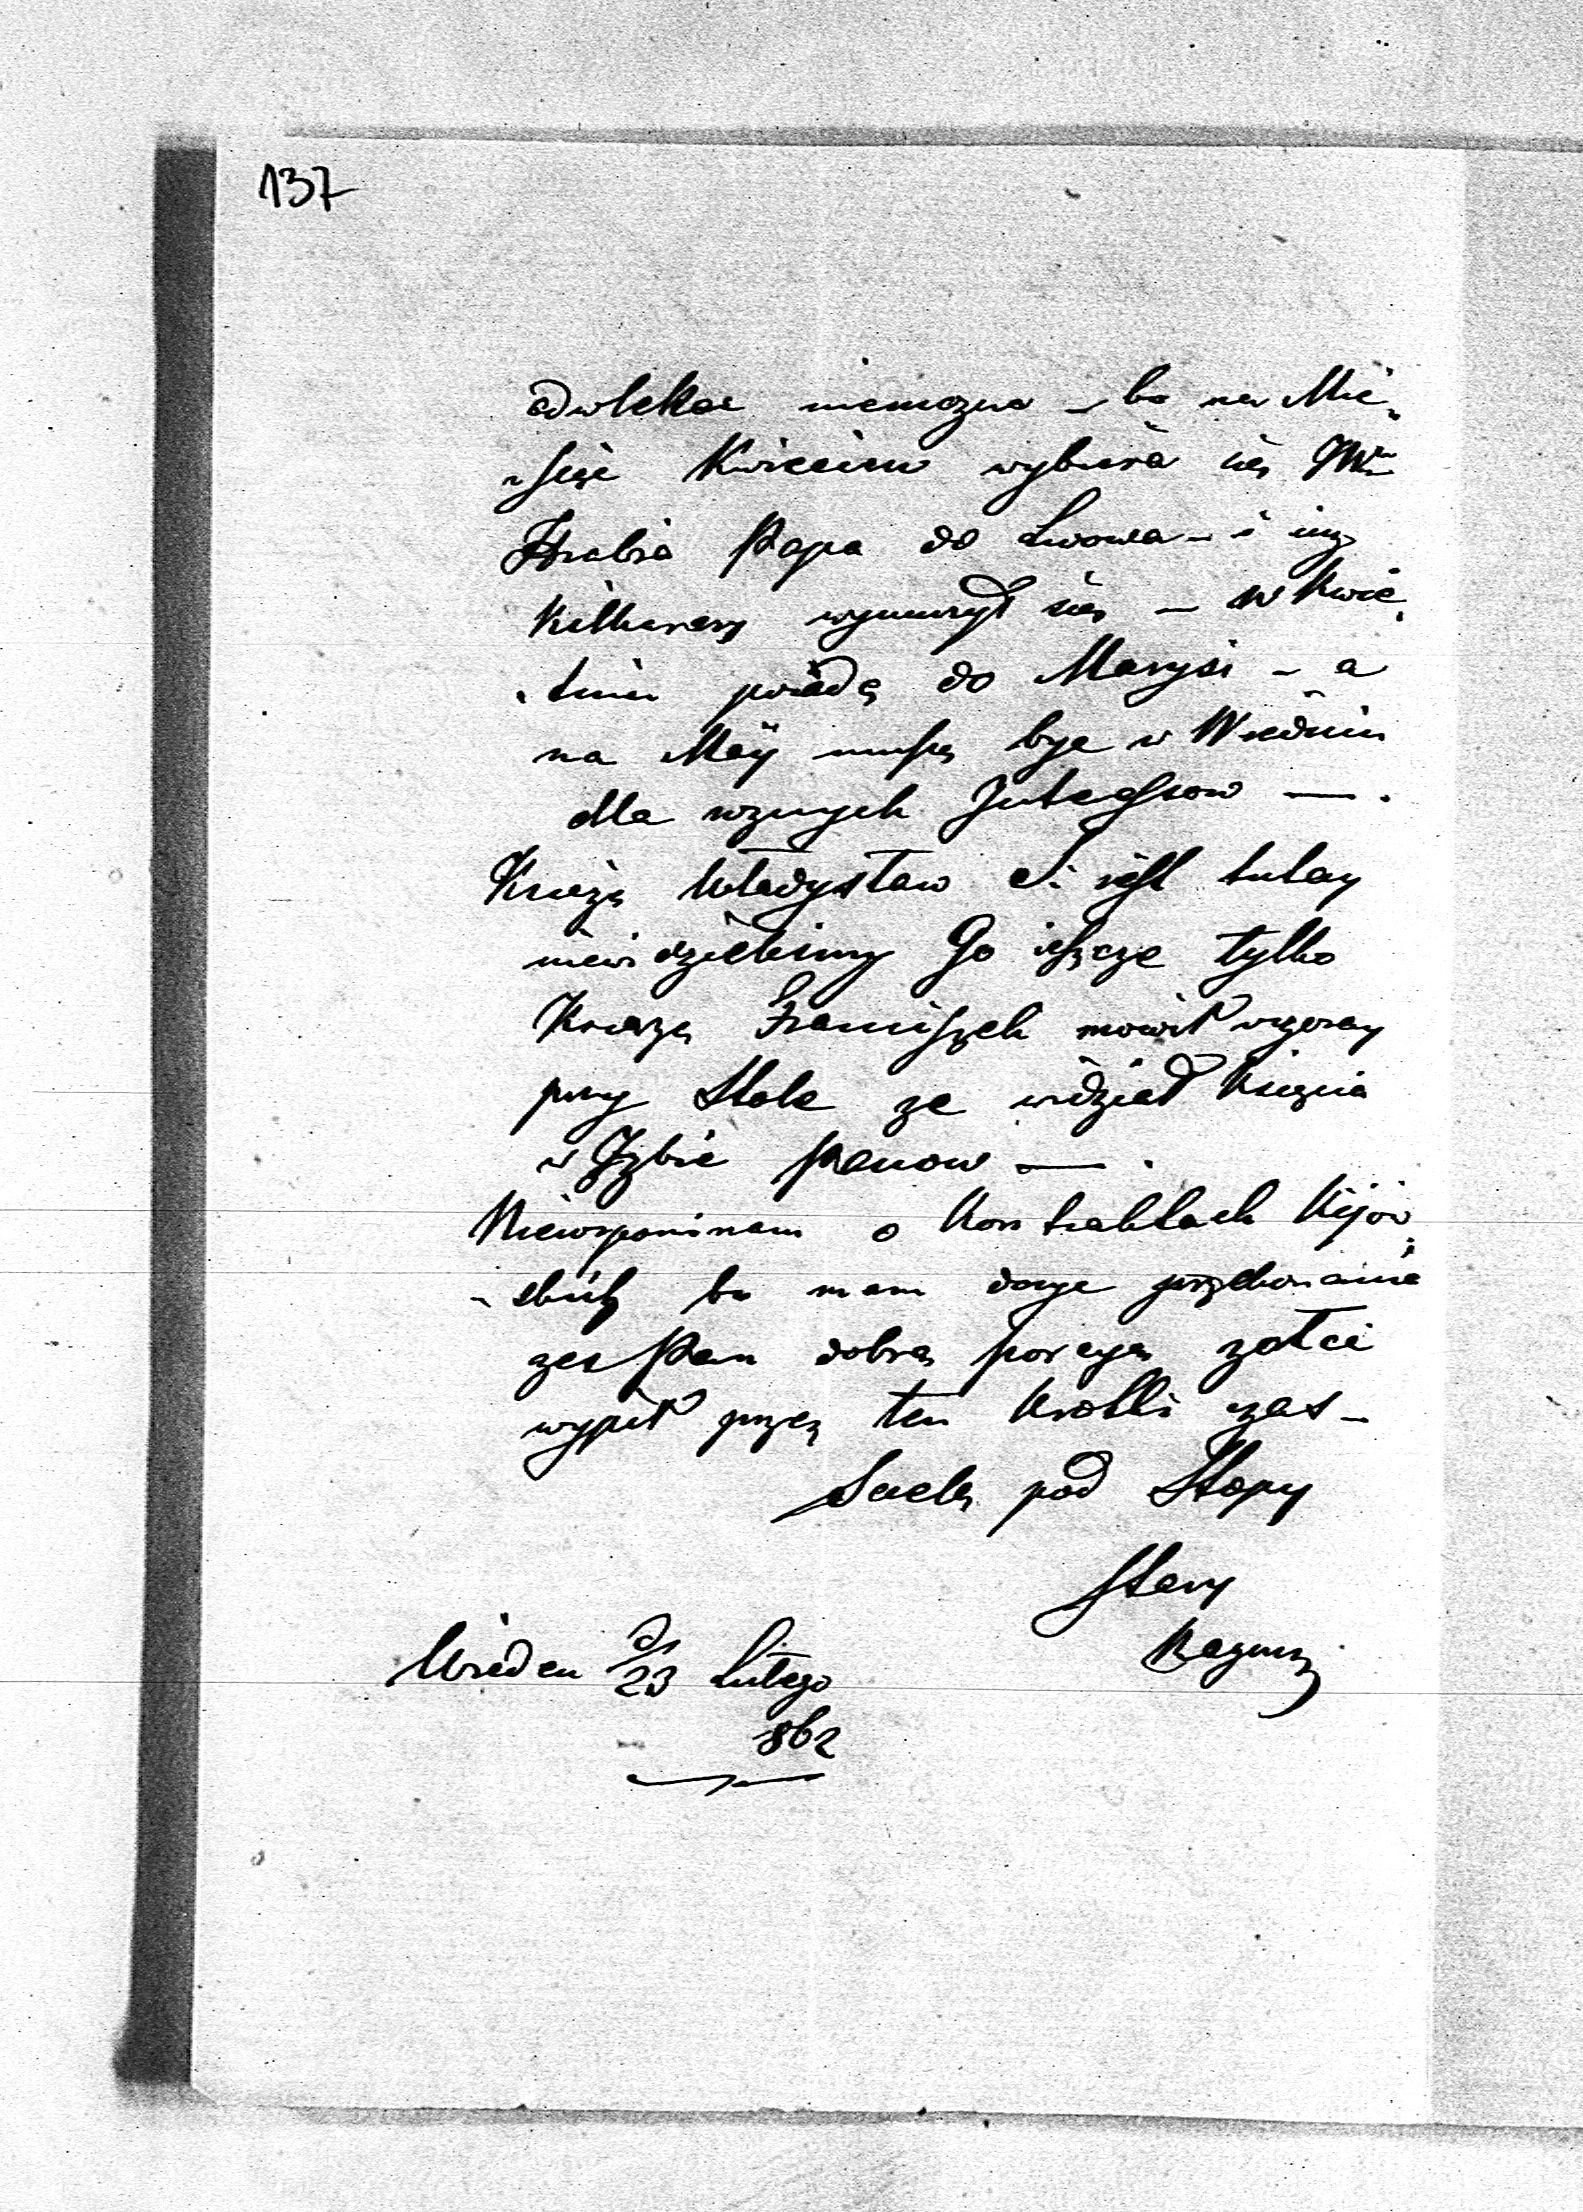 137
odwlekac niemozna – bo na Mie„
„siąc Kwiecien wybiera się JW
Hrabia Papa do Lwowa – i iuz
Kilkarazy wymowył się – w Kwie„
„tniu poiadę do Marysi – a
na May muszę byc w Wiedniu
dla roznych Interessow —.
Xiąże Władysław S. iest tutay
niewidzielismy Go ieszcze tylko
Xsiąze Franciszek mowił wczoray
przy Stole ze widział Xsięcia
w Izbie Panow —.
Niewspominam o Kontraktach Kijow„
„skich bo mam  przekonanie
zes Pan dobrą porcyą zołci
wypił przez ten Krotki czas –
Sciele pod Stopy
Stary
Wieden d 23 Lutego
862